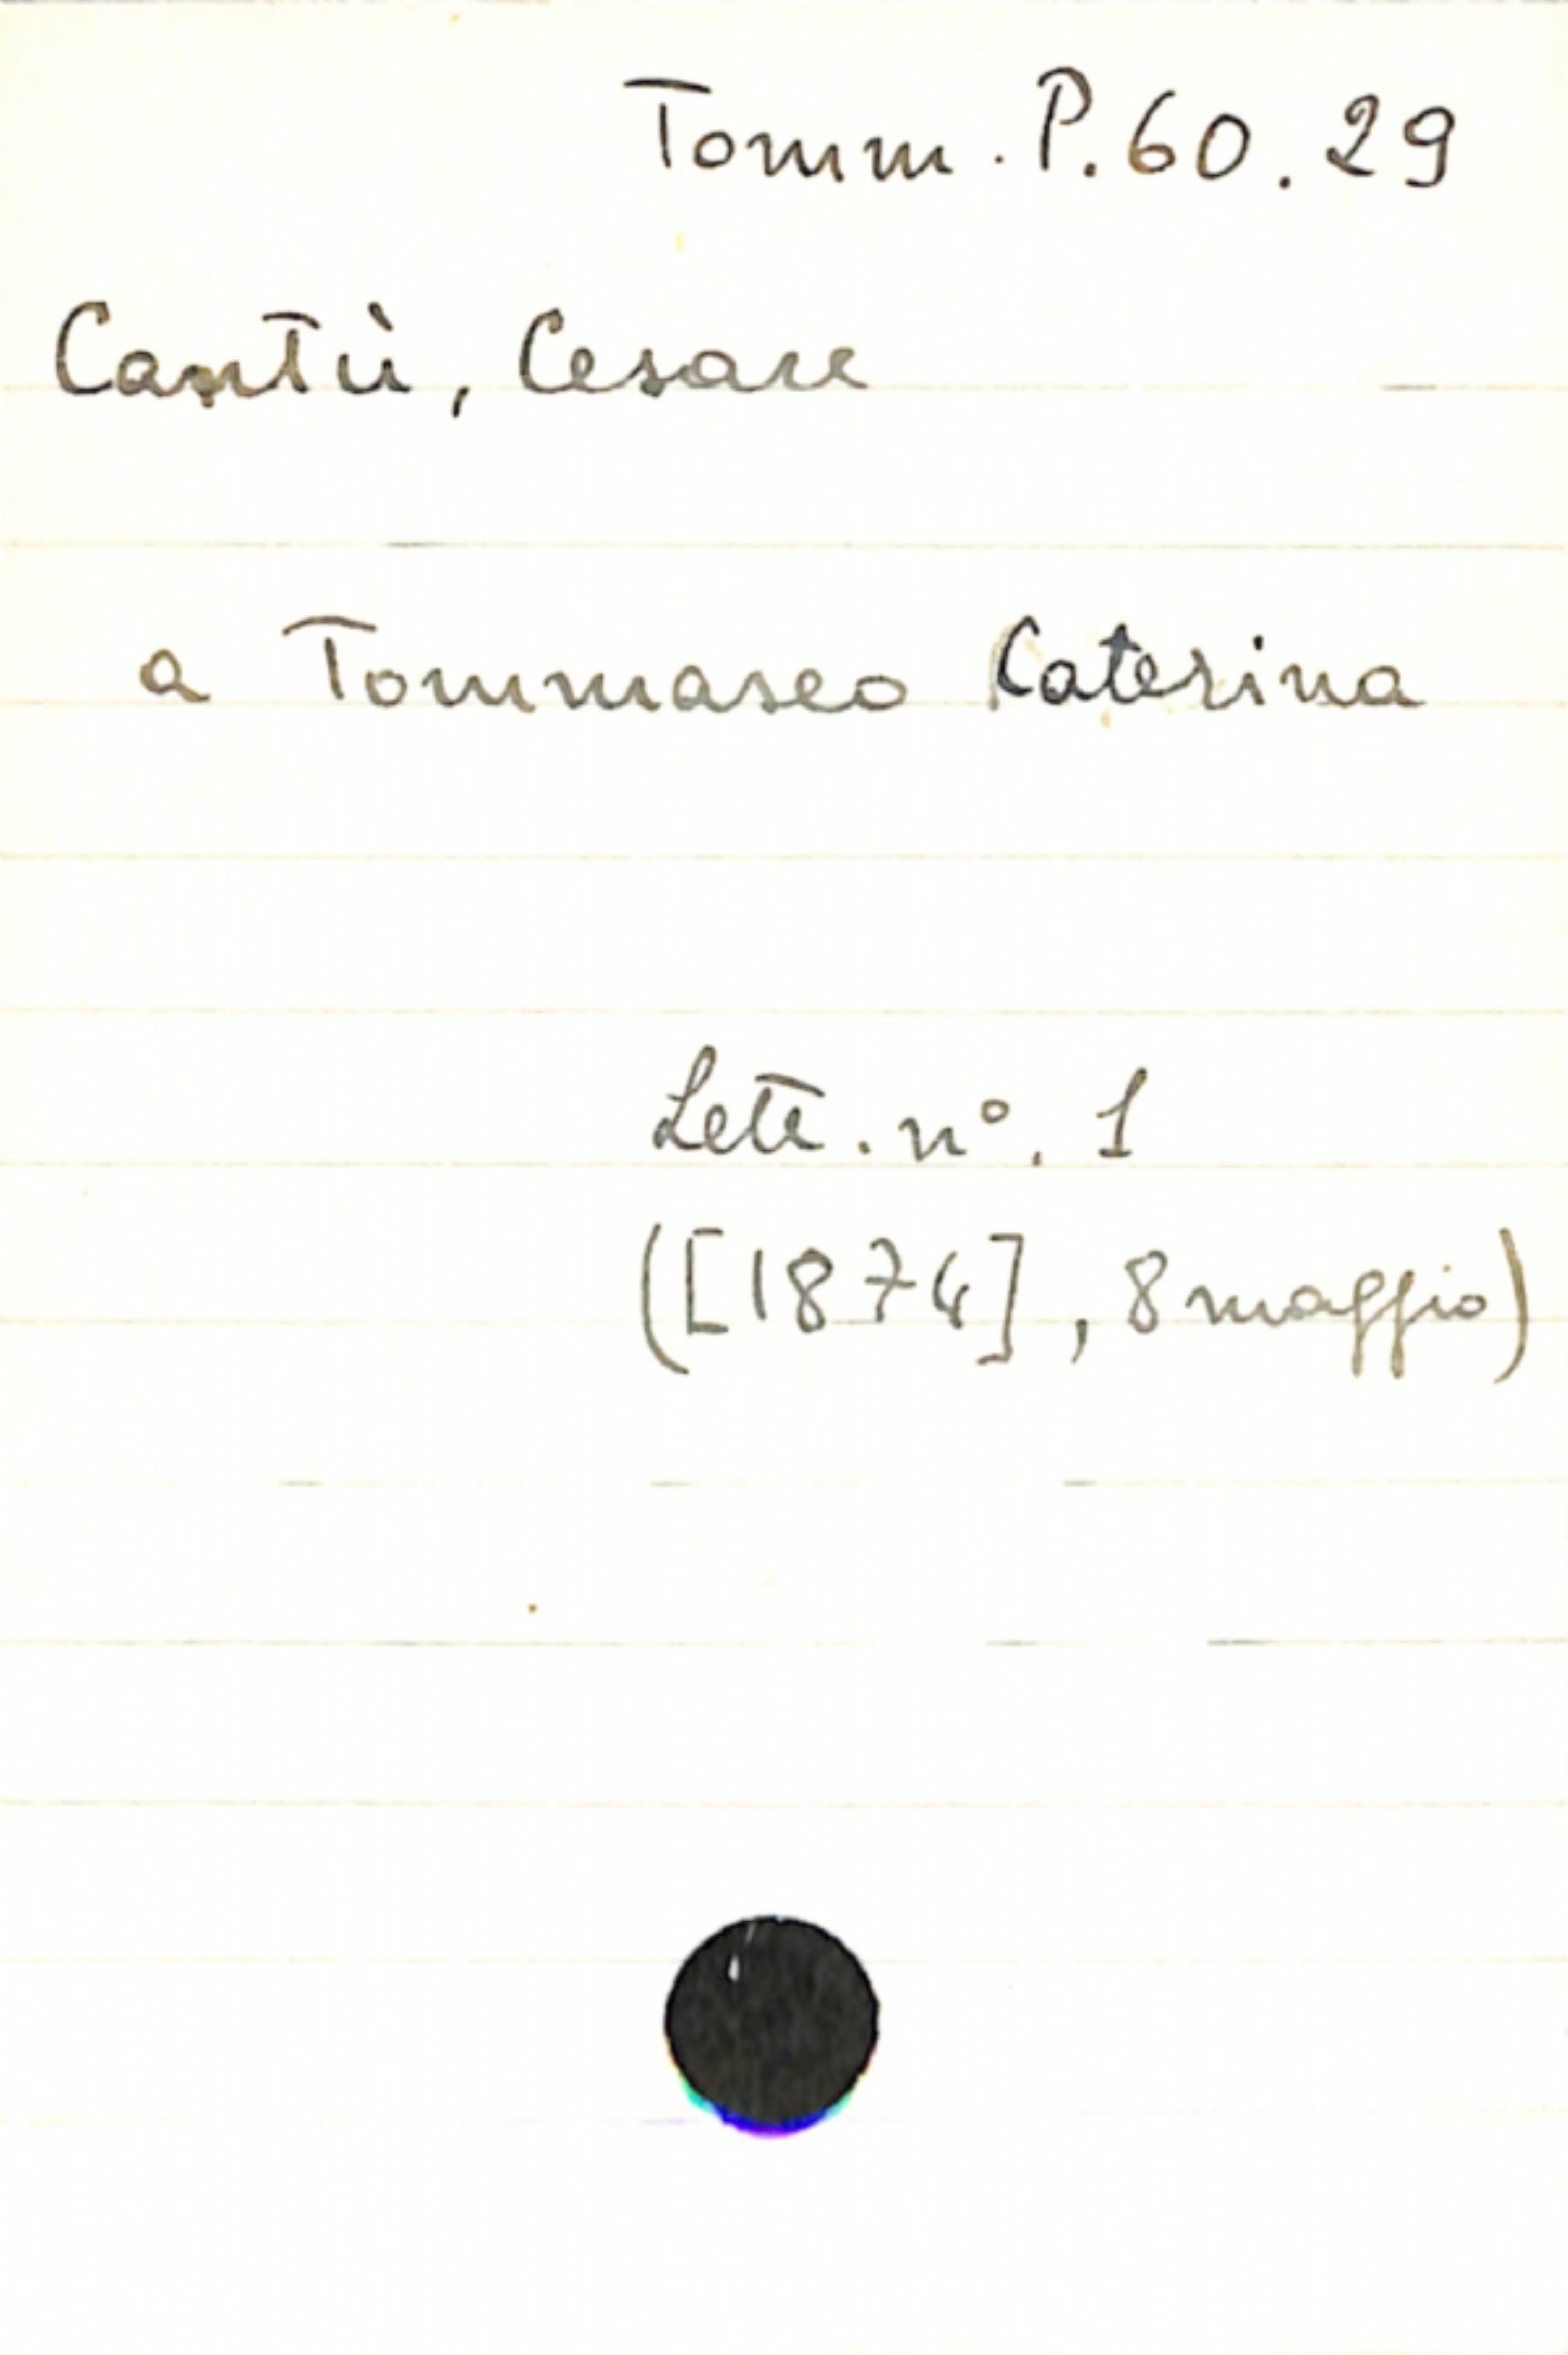 Tomm. P. 60. 29
Cantù, Cesare
a Tommaseo Caterina
Lett. n°. 1
([1874], 8 maggio)